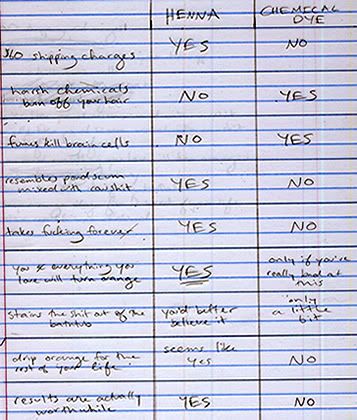 HENNA
CHEMICAL
DYE
$10 shipping charges
YES
NO
harsh chemicals
burn off your hair
NO
YES
fumes kill brain cells
NO
YES
resembles pond scum
mixed with cow shit
YES
NO
takes fucking forever
YES
NO
you & everything you
love will turn orange
YES
only if you're
really bad at
this
stains the shit out of the
bathtub
you'd better
believe it
only
a little
bit
drip orange for the
rest of your life
seems like
yes
NO
results are actually
worthwhile
YES
NO